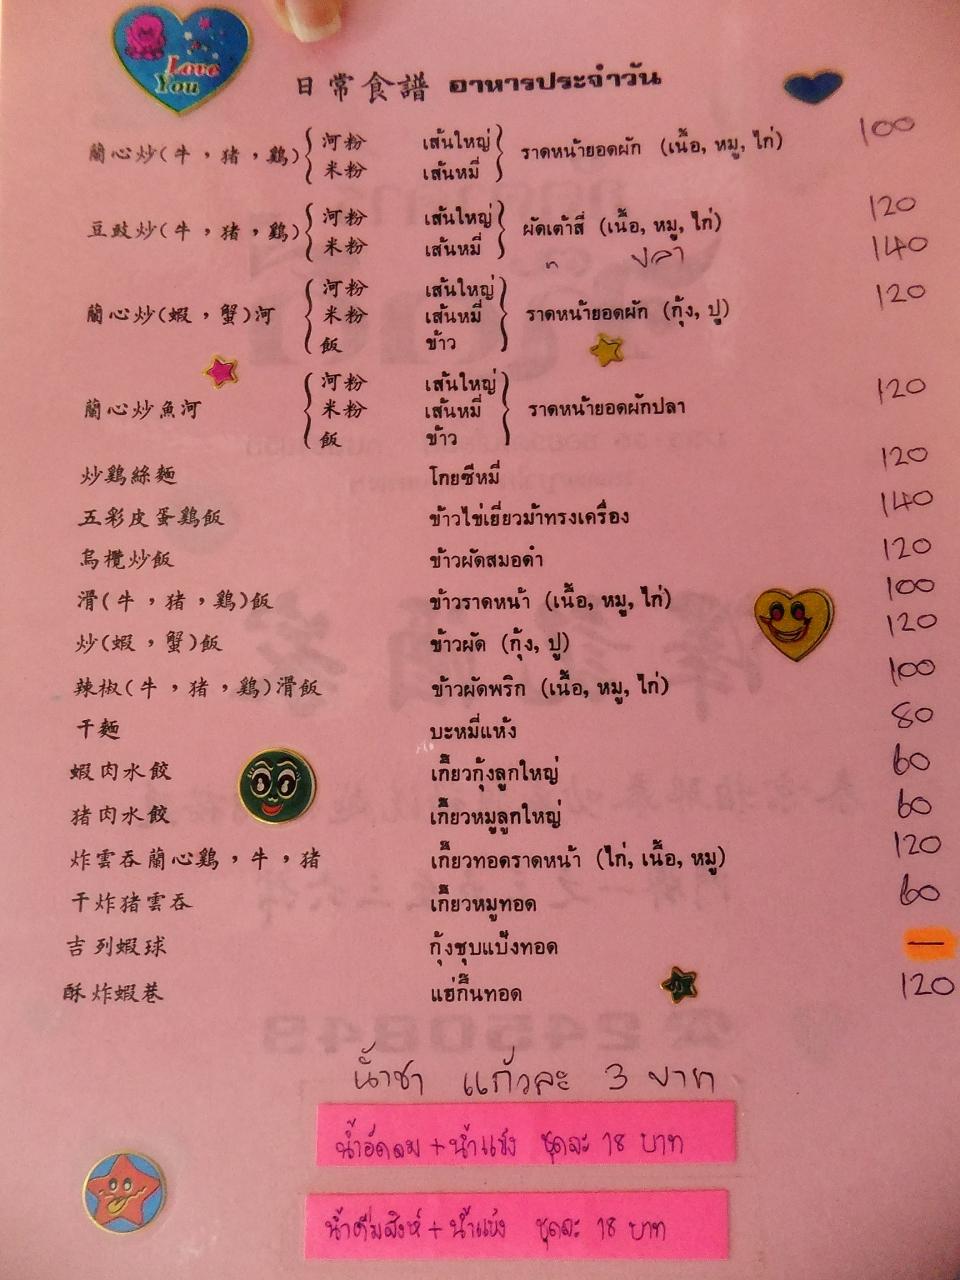 Love
You
日常食譜 อาหารประจำวัน
蘭心炒(牛，猪，鷄) 河粉 เส้นใหญ่ ราดหน้ายอดผัก (เนื้อ, หมู, ไก่) 100
米粉 เส้นหมี่
豆豉炒(牛，猪，鷄) 河粉 เส้นใหญ่ ผัดเต้าสี่ (เนื้อ, หมู, ไก่) 120
米粉 เส้นหมี่ ปลา 140
蘭心炒(蝦，蟹)河 河粉 เส้นใหญ่ ราดหน้ายอดผัก (กุ้ง, ปู) 120
米粉 เส้นหมี่
飯 ข้าว
蘭心炒魚河 河粉 เส้นใหญ่ ราดหน้ายอดผักปลา 120
米粉 เส้นหมี่
飯 ข้าว
炒鷄絲麵 โกยซีหมี่ 120
五彩皮蛋鷄飯 ข้าวไข่เยี่ยวม้าทรงเครื่อง 140
烏欖炒飯 ข้าวผัดสมอดำ 120
滑(牛，猪，鷄)飯 ข้าวราดหน้า (เนื้อ, หมู, ไก่) 100
炒(蝦，蟹)飯 ข้าวผัด (กุ้ง, ปู) 120
辣椒(牛，猪，鷄)滑飯 ข้าวผัดพริก (เนื้อ, หมู, ไก่) 100
干麵 บะหมี่แห้ง 80
蝦肉水餃 เกี๊ยวกุ้งลูกใหญ่ 60
猪肉水餃 เกี๊ยวหมูลูกใหญ่ 60
炸雲吞蘭心鷄，牛，猪 เกี๊ยวทอดราดหน้า (ไก่, เนื้อ, หมู) 120
干炸猪雲吞 เกี๊ยวหมูทอด 60
吉列蝦球 กุ้งชุบแป้งทอด —
酥炸蝦巷 แฮ่กึ๊นทอด 120
น้ำชา แก้วละ 3 บาท
น้ำอัดลม + น้ำแข็ง ชุดละ 18 บาท
น้ำดื่มสิงห์ + น้ำแข็ง ชุดละ 18 บาท